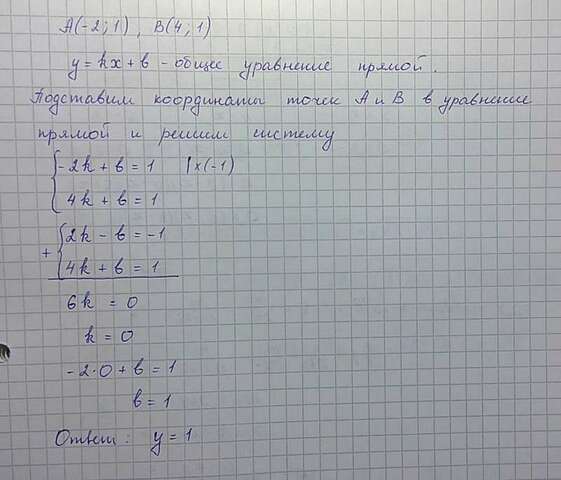 A(-2; 1), B(4; 1)
y = kx + b - общее уравнение прямой.
Подставим координаты точек A и B в уравнение
прямой и решим систему
{-2k + b = 1 |×(-1)
4k + b = 1
+ {2k - b = -1
4k + b = 1
6k = 0
k = 0
-2·0 + b = 1
b = 1
Ответ: y = 1